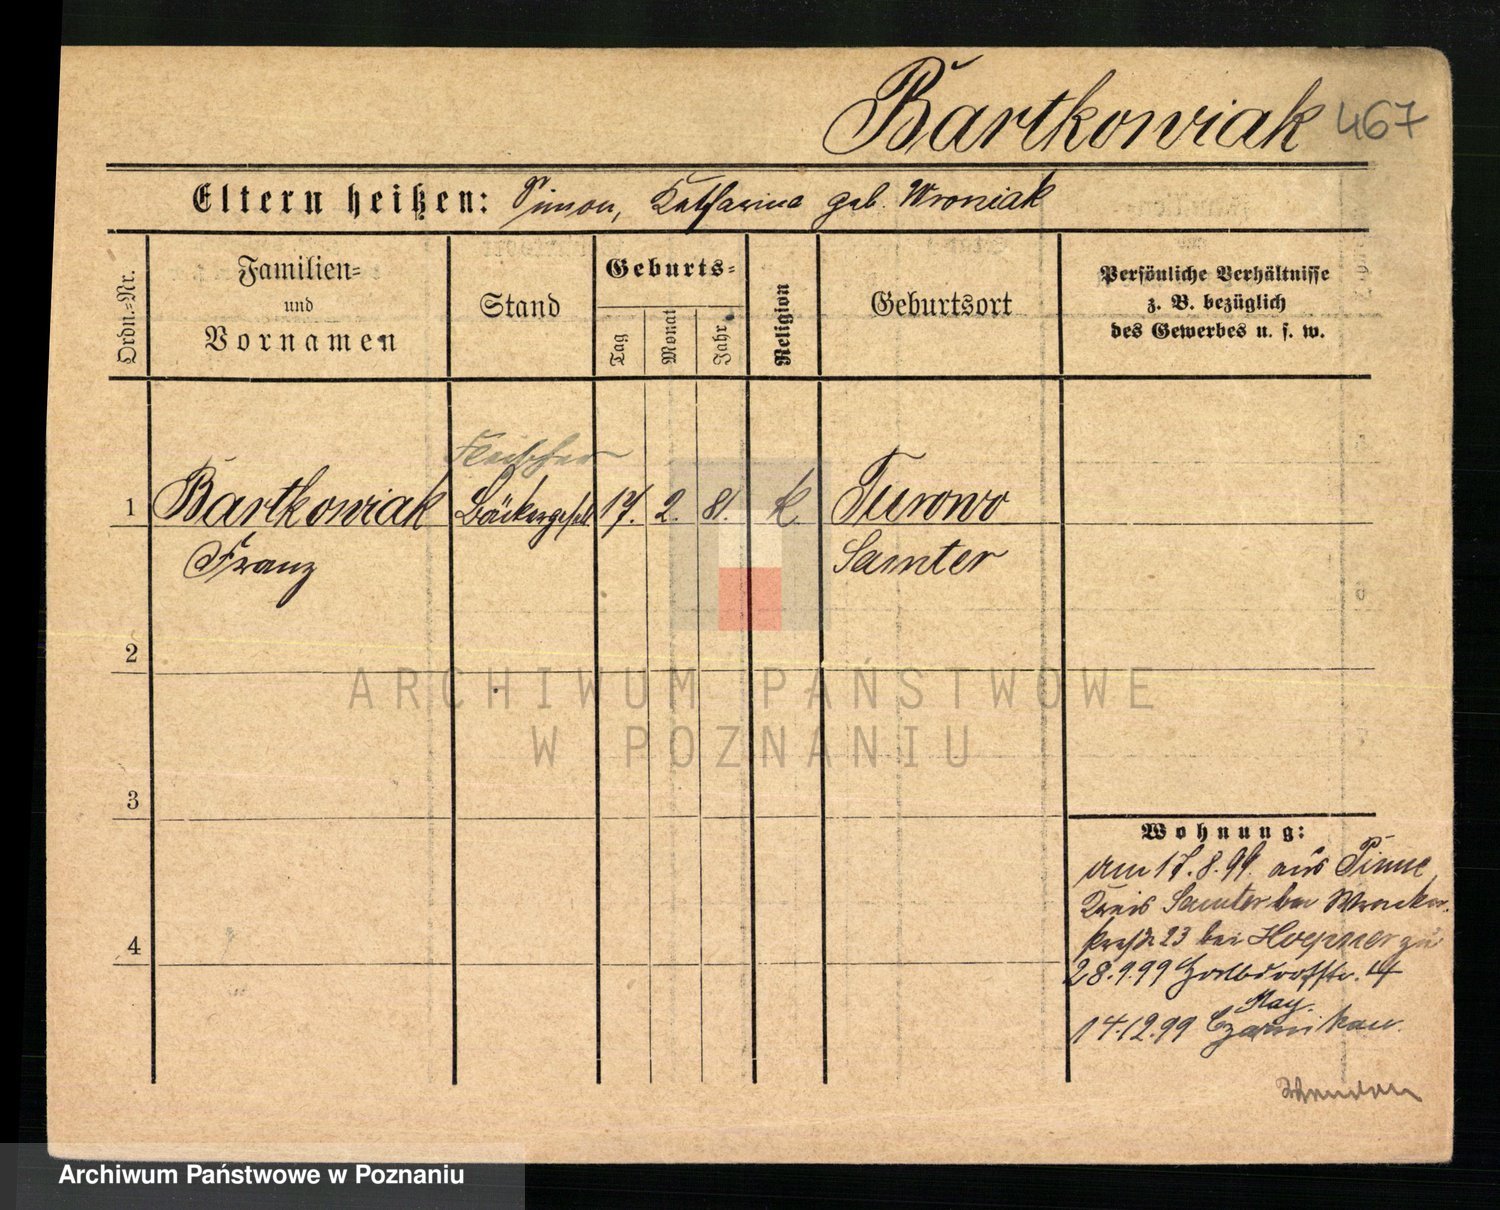 Bartkowiak 467
Eltern heißen: Simon, Katharina geb. Wroniak
Ordn.-Nr.
Familien-
und
Vornamen
Stand
Geburts-
Tag
Monat
Jahr
Religion
Geburtsort
Persönliche Verhältnisse
z. B. bezüglich
des Gewerbes u. s. w.
Fleischer
1 Bartkowiak Bäckergesell 17. 2. 81. k. Turowo
Franz Samter
2
ARCHIWUM PAŃSTWOWE
W POZNANIU
3
Wohnung:
am 17.8.99. aus Pinne
Kreis Samter
23 bei zu
28.9.99 14
May.
14.12.99 Czarnikau.
4
Archiwum Państwowe w Poznaniu